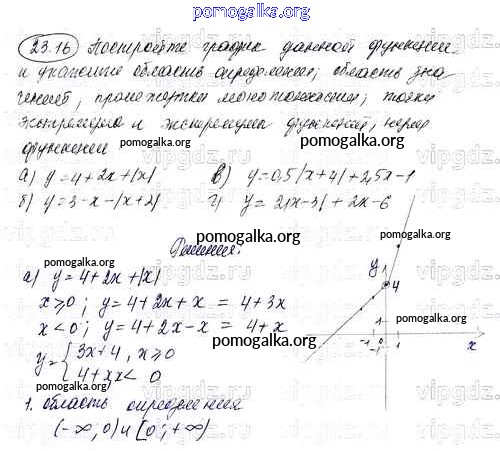 pomogalka.org
23.16 Постройте график данной функции
и укажите область определения; область зна
чений, промежутки монотонности; точки
экстремума и экстремумы функций, нули
функции
а) y = 4+2x+|x|  в) y = 0,5|x+4|+2,5x-1
б) y = 3-x-|x+2|  г) y = 2|x-3|+2x-6
Решения.
а) y = 4+2x+|x|
x≥0; y = 4+2x+x = 4+3x
x<0; y = 4+2x-x = 4+x
y = { 3x+4, x≥0
4+x x< 0
1. область определения
(-∞, 0) и [0; +∞)
y
4
1
-1 0 1
x
pomogalka.org
pomogalka.org
pomogalka.org
pomogalka.org
pomogalka.org
pomogalka.org
pomogalka.org
pomogalka.org
vipgdz.ru
vipgdz.ru
vipgdz.ru